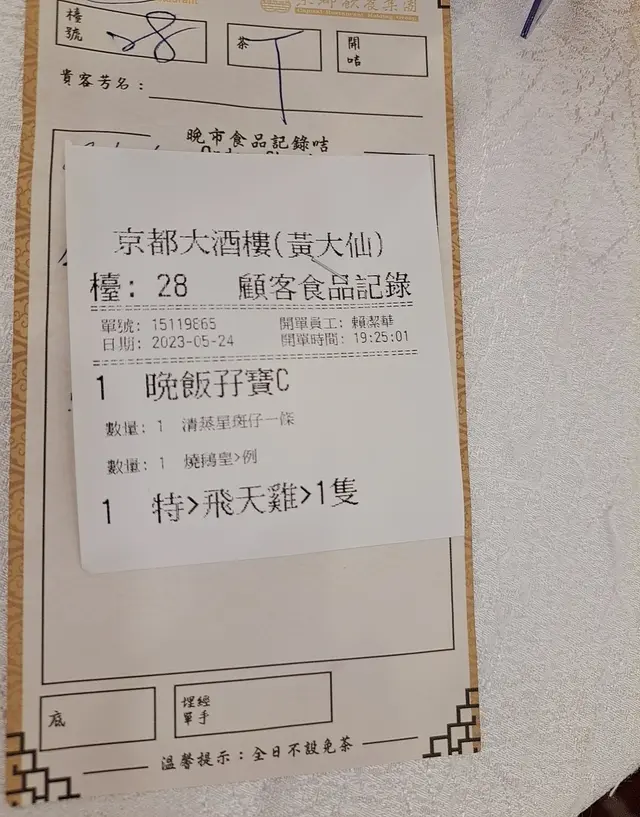 京都飲食集團
檯號 28
茶 T
開咭
貴客芳名：
晚市食品記錄咭
京都大酒樓(黃大仙)
檯: 28 顧客食品記錄
單號: 15119865 開單員工: 賴潔華
日期: 2023-05-24 開單時間: 19:25:01
1 晚飯孖寶C
數量: 1 清蒸星斑仔一條
數量: 1 燒鵝皇>例
1 特>飛天雞>1隻
底
埋單 經手
溫馨提示：全日不設免茶